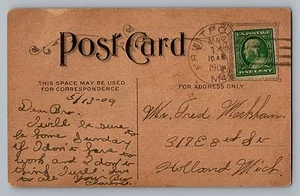 Post Card
THIS SPACE MAY BE USED
FOR CORRESPONDENCE
FOR ADDRESS ONLY.
5/13-09
Dear Bro.
I will be sure to
be home Sunday
if I don't have to
work and I don't
think I will have
to all
Mr. Fred Markham
317 E 8th St
Holland Mich.